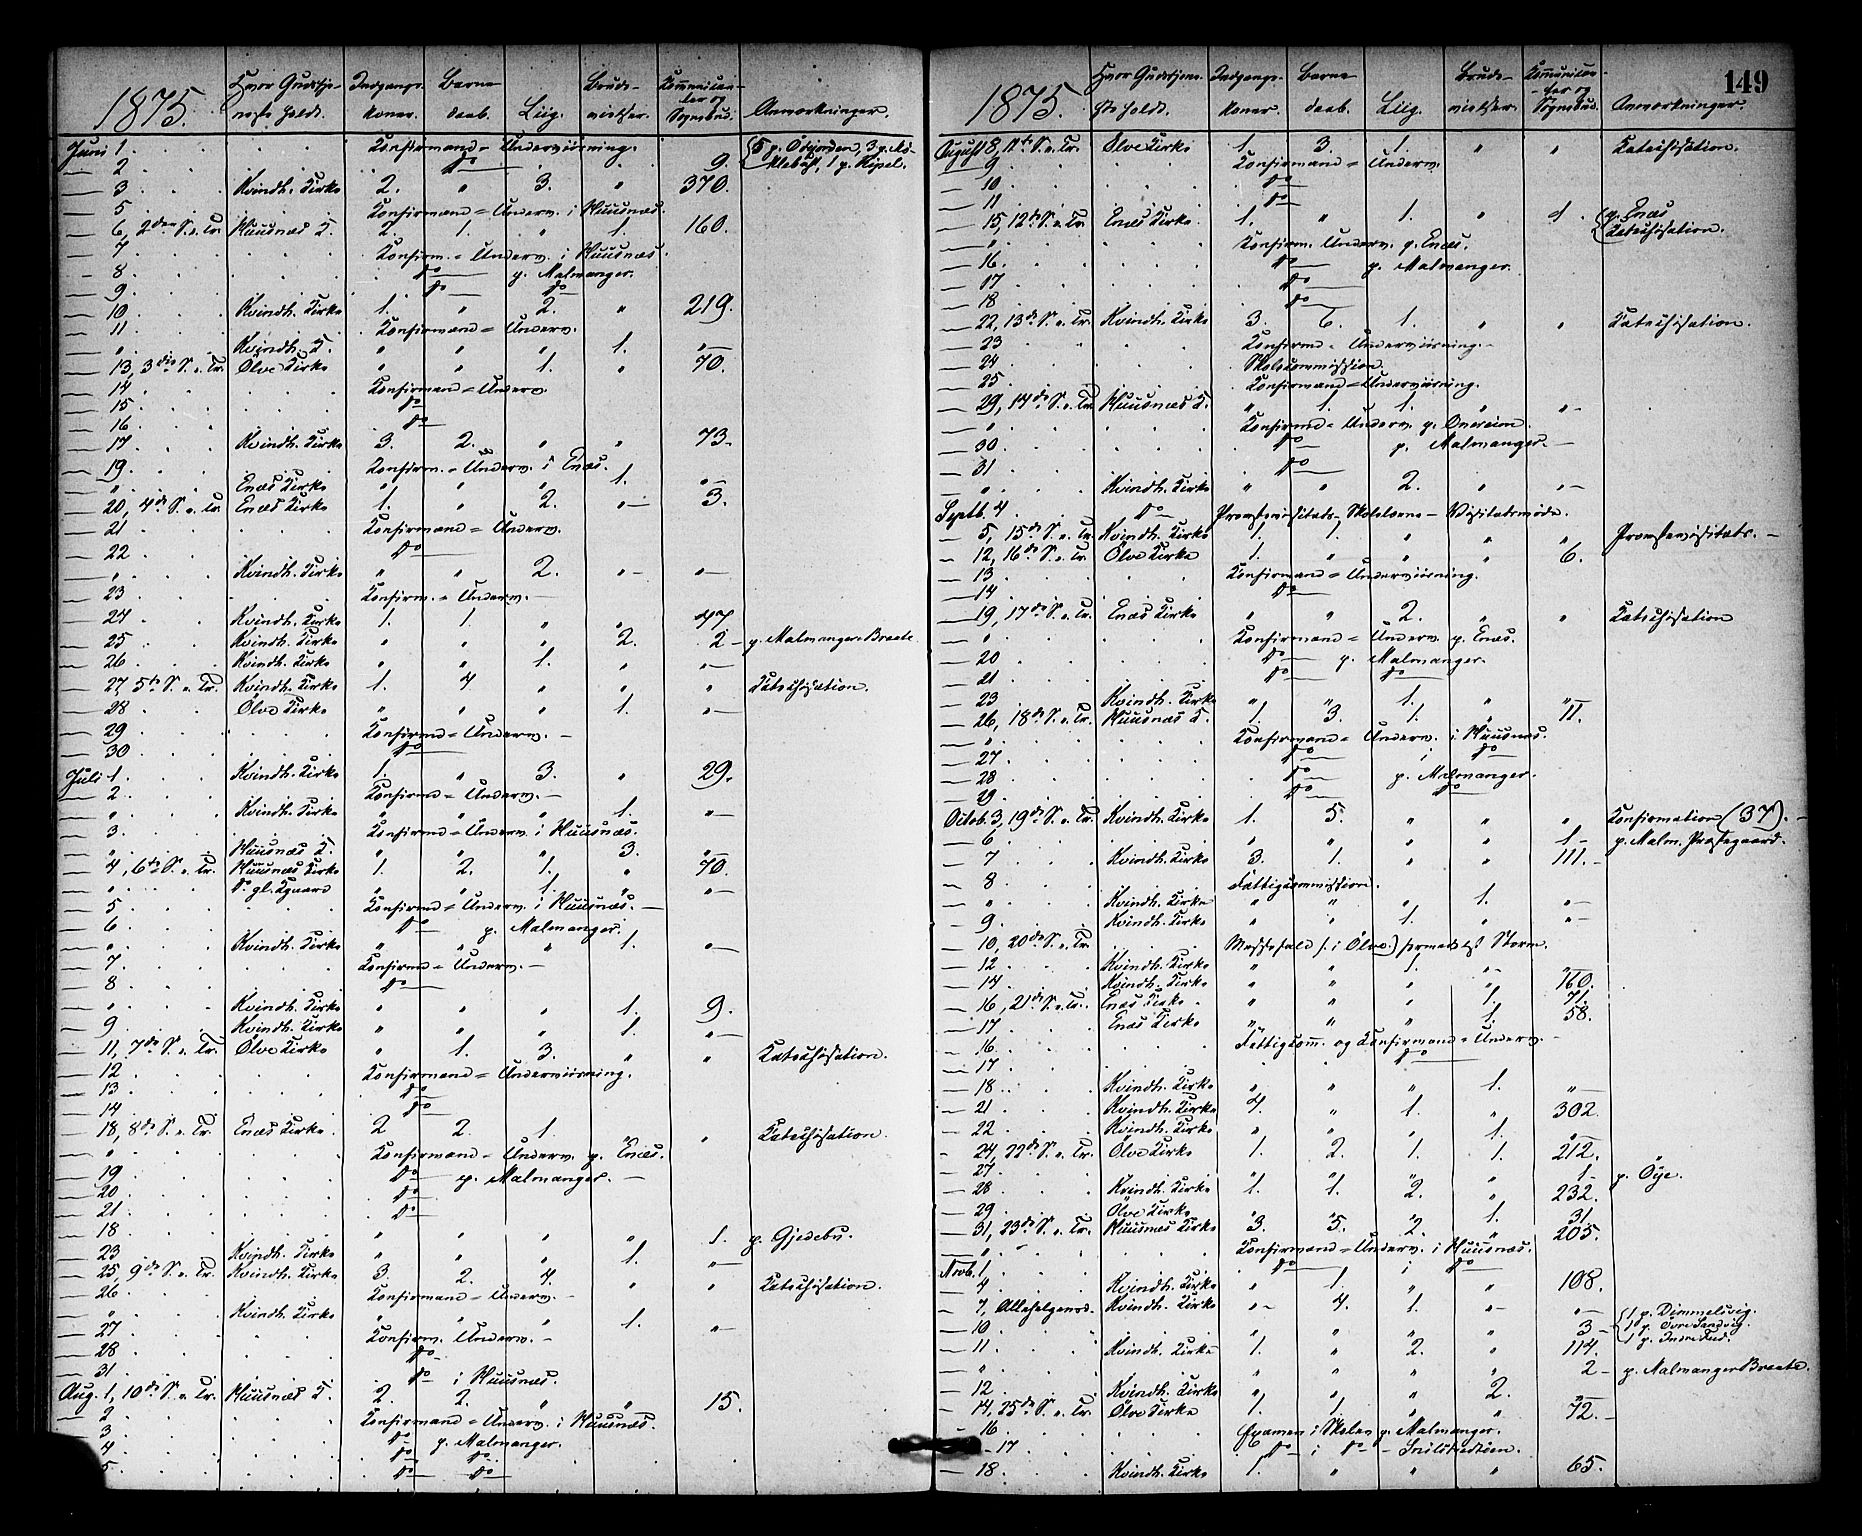 149
1875. Hvor Gudstje- Indgangs- Barne- Brude- Kommunikan-
neste holdt. koner. daab. Liig. vielser. ter og Sognebud. Anmærkninger.
Juni 1. Konfirmand=Underviisning. 5 p. Ødejorden, 3 p.
2. Do 9. 1 p.
3. Kvindh. Kirke 2. " 3. " 370.
5. Konfirmand=Underv. i Huusnæs.
6, 2den S. e. Tr. Huusnæs K. 2. 1. " 1. 160.
7. Konfirm.=Underv. i Huusnæs.
8. Do p. Malmanger.
9. Do Do
10. Kvindh. Kirke 1. " 2. " 219.
11. Konfirmand=Underv.
" Kvindh. K. " " " 1. "
13, 3die S. e. Tr. Ølve Kirke " " 1. " 70.
14. Konfirmand=Underv.
15. Do
16. Do
17. Kvindh. Kirke 3. 2. " " 73.
19. Konfirm.=Underv. i Enæs.
" Enæs Kirke " " " 1. "
20, 4de S. e. Tr. Enæs Kirke 1. " 2. " 3.
21. Konfirmand=Underv.
22. Do
" Kvindh. Kirke " " 2. " "
23. Konfirm.=Underv.
24. Kvindh. Kirke 1. 1. " " 47
25. Kvindh. Kirke " " " 2. 2 p. Malmanger-Breete
26. Kvindh. Kirke " " 1. " "
27, 5te S. e. Tr. Kvindh. Kirke 1. 4 " " " Katechisation.
28. Ølve Kirke " " " 1. "
29. Konfirmd=Underv.
30. Do
Juli 1. Kvindh. Kirke 1. " 3. " 29.
2. Konfirmd=Underv.
" Kvindh. Kirke " " " 1. "
3. Konfirmd=Underv. i Huusnæs.
" Huusnæs K. " " " 3. "
4, 6te S. e. Tr. Huusnæs Kirke 1. 2. 1. " 70.
" Do gl. Kgaard " " 1. " "
5. Konfirmand=Underv. i Huusnæs.
6. Do p. Malmanger.
" Kvindh. Kirke " " " 1. "
7. Konfirmd=Underv.
8. Do
" Kvindh. Kirke " " " 1. 9.
9. Kvindh. Kirke " " " 1. "
11, 7de S. e. Tr. Ølve Kirke " 1. 3. " " Katechisation.
12. Konfirmand=Underviisning.
13. Do
14. Do
18, 8de S. e. Tr. Enæs Kirke. 2 2. 1. " " Katechisation.
" Konfirmand=Underv. p. Enæs.
19. Do p. Malmanger.
20. Do
21. Do
18. " " " " 1. p. Gjedebu.
23 Kvindh. Kirke " " " 1. "
25, 9de S. e. Tr. Kvindh. Kirke 3. 2. 4. " " Katechisation.
26. Konfirmand=Underv.
" Kvindh. Kirke " " " 1. "
27. Konfirm. Underv.
28. Do
31. Do i Huusnæs.
Aug. 1, 10de S. e. Tr. Huusnæs K. 2. 2. " " 15.
2. Konfirmand=Underv. i Huusnæs.
3. Do p. Malmanger.
4. Do Do
5. Do Do
1875. Hvor Gudstjene- Indgangs- Barne- Brude- Kommunikan-
ste holdt. koner. daab. Liig. vielser. -ter og Sognebud. Anmærkninger.
August 8, 11te S. e. Tr. Ølve Kirke 1. 3. 1. " " Katechisation.
9 Konfirmand=Underv.
10. Do
11. Do
15, 12te S. e. Tr. Enæs Kirke 1. " 1. " 1. p. Enæs
Katechisation.
" Konfirm. Underv. p. Enæs.
16. Do p. Malmanger.
17. Do
18 Do
22, 13de S. e. Tr. Kvindh. Kirke 3. 6. 1. " " Katechisation.
23 Konfirmd=Underviisning.
24. Skolekommission.
25. Konfirmand=Underviisning.
29, 14de S. e. Tr. Huusnæs K. " 1. 1. " "
" Konfirmd=Underv. p. Onereim.
30. Do p. Malmanger.
31. Do
" Kvindh. Kirke " " 2. " "
Septb. 4. Do Provstevisitats, Skolelærer-Visitatsmøde.
5, 15de S. e. Tr. Kvindh. Kirke 1. 1. " " " Provstevisitats.
12, 16de S. e. Tr. Ølve Kirke 1. " " " 6.
13. Konfirmand=Underviisning.
14. Do
19, 17de S. e. Tr. Enæs Kirke " " 2. " " Katechisation
" Konfirmand=Underv. p. Enæs.
20. Do p. Malmanger.
21. Do Do
23 Kvindh. Kirke " " 1. " "
26, 18de S. e. Tr. Huusnæs K. 1. 3. 1. " 11.
" Konfirmand=Underv. i Huusnæs.
27. Do i Do
28. Do p. Malmanger.
29. Do Do
Octob. 3, 19de S. e. Tr. Kvindh. Kirke 1. 5. " " " Konfirmation (37).
6. " " " " 1 p. Malm. Præstegaard.
7. Kvindh. Kirke 3. 1. " " 111.
8. Fattigkommission.
" Kvindh. Kirke " " " 1. "
9. Kvindh. Kirke " " 1. " "
10, 20de S. e. Tr. Messefald (: i Ølve:) formedelst Storm.
12. Kvindh. Kirke " " 1. " "
14. Kvindh. Kirke " " " " 160.
16, 21de S. e. Tr. Enæs Kirke. " " " 1. 71.
17. Enæs Kirke " " " 1. 58.
16. Fattigkom. og Konfirmand=Underv.
17. Do
18. Kvindh. Kirke " " " 1. "
21. Kvindh. Kirke 4. " 1. " 302.
22. Kvindh. Kirke " " " 1. "
24, 22de S. e. Tr. Ølve Kirke 1. 2. 1. 1. 212.
27. " " " " 1. p. Øye.
28. Kvindh. Kirke 1. 1. 2. " 232.
29. Ølve Kirke " " " 1. 31.
31, 23de S. e. Tr. Huusnæs Kirke 3. 5. 2. " 205.
" Konfirmand=Underv. i Huusnæs.
Novb. 1. Do i Do
4. Kvindh. Kirke " 1. " " 108.
7, Allehelgensd. Kvindh. Kirke " 4. 1. " "
10. " " " " 3 1 p. Dimmelsvig.
1 p. Øvre Sandvig.
1 p. Indre Tud.
11. Kvindh. Kirke 1. " 2. " 114.
" " " " " 2 p. Malmanger Breete.
12. Kvindh. Kirke " " " 2. "
14, 25de S. e. Tr. Ølve Kirke 1. 1. " " 72.
16. Examen i Skolen p. Malmanger.
17. Do i Do
18. Kvindh. Kirke 1. " " " 65.